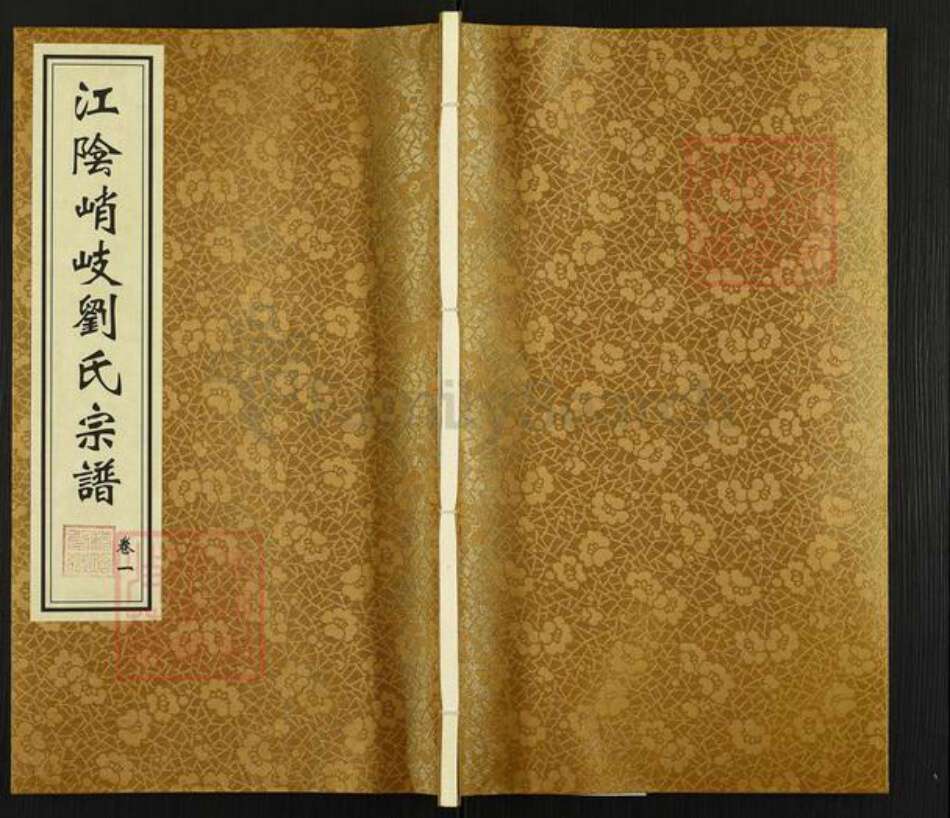 江陰峭岐劉氏宗譜
卷一
FamilySearch